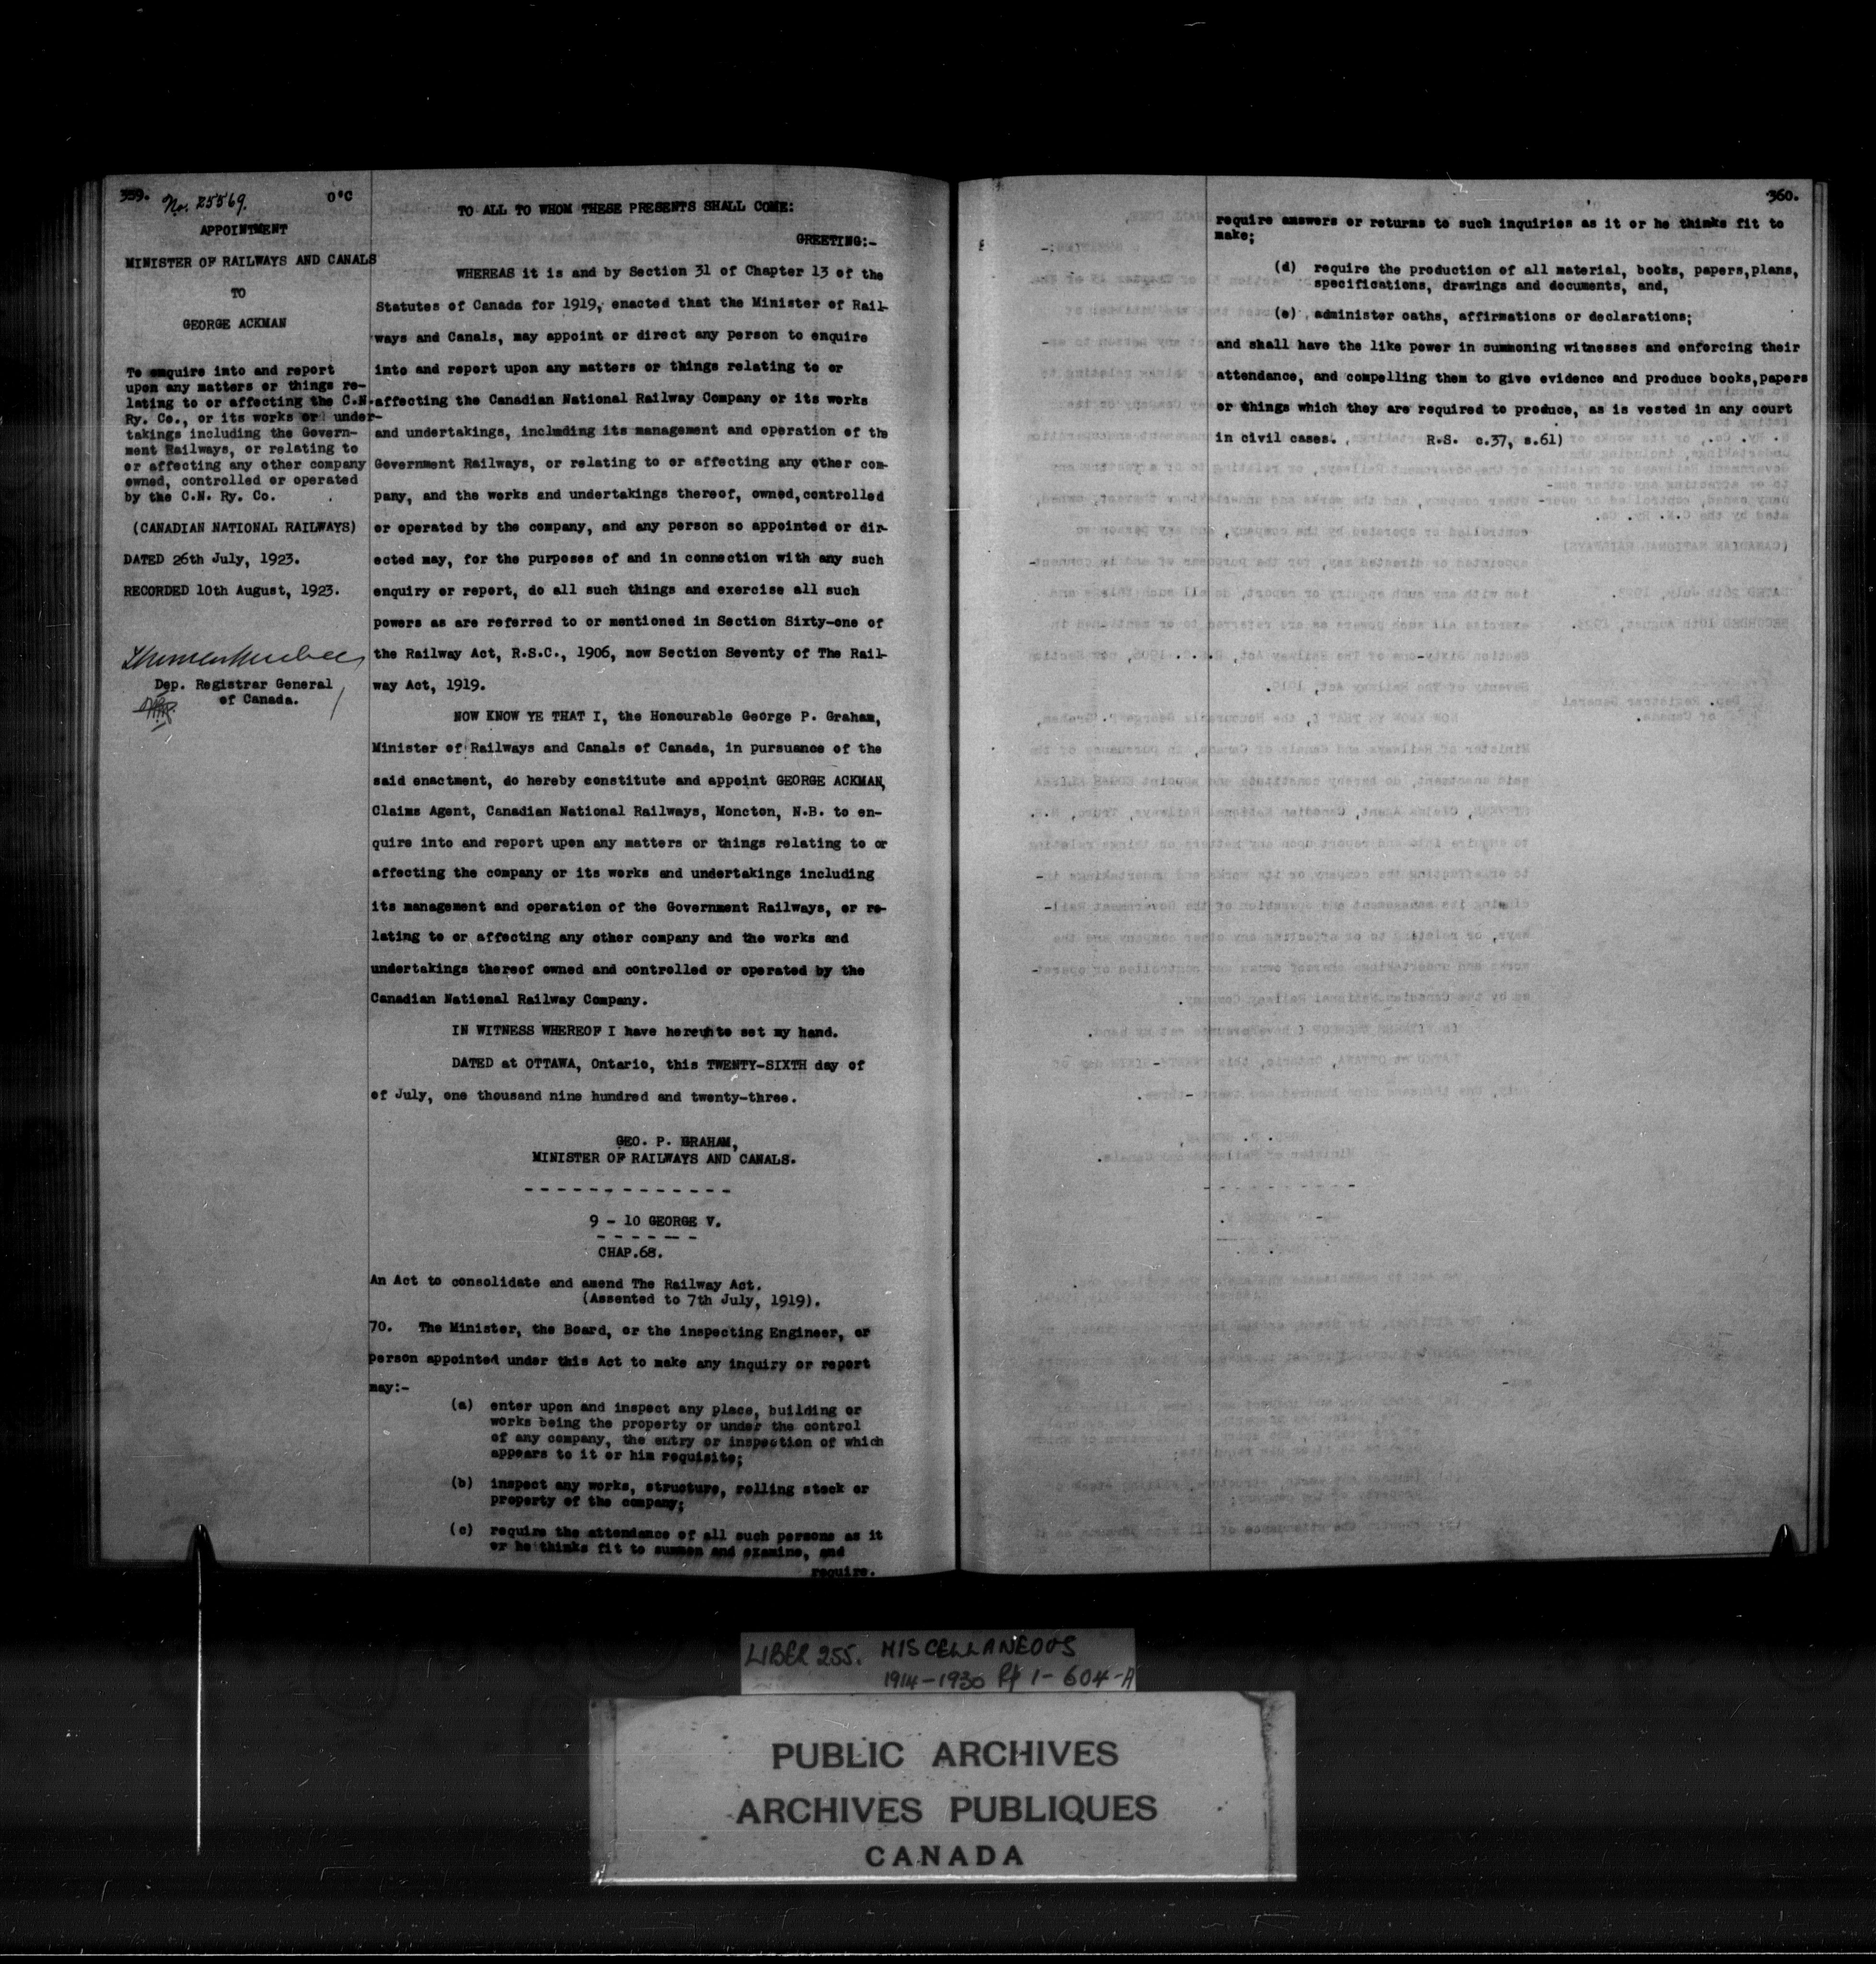 359. No. 25569. O'C
APPOINTMENT
MINISTER OF RAILWAYS AND CANALS
TO
GEORGE ACKMAN
To enquire into and report
upon any matters or things re-
lating to or affecting the C.N.
Ry. Co., or its works or under-
takings including the Govern-
ment Railways, or relating to
or affecting any other company
owned, controlled or operated
by the C.N. Ry. Co.
(CANADIAN NATIONAL RAILWAYS)
DATED 26th July, 1923.
RECORDED 10th August, 1923.
Dep. Registrar General
of Canada.
TO ALL TO WHOM THESE PRESENTS SHALL COME:
GREETING:-
WHEREAS it is and by Section 31 of Chapter 13 of the
Statutes of Canada for 1919, enacted that the Minister of Rail-
ways and Canals, may appoint or direct any person to enquire
into and report upon any matters or things relating to or
affecting the Canadian National Railway Company or its works
and undertakings, including its management and operation of the
Government Railways, or relating to or affecting any other com-
pany, and the works and undertakings thereof, owned,controlled
or operated by the company, and any person so appointed or dir-
ected may, for the purposes of and in connection with any such
enquiry or report, do all such things and exercise all such
powers as are referred to or mentioned in Section Sixty-one of
the Railway Act, R.S.C., 1906, now Section Seventy of The Rail-
way Act, 1919.
NOW KNOW YE THAT I, the Honourable George P. Graham,
Minister of Railways and Canals of Canada, in pursuance of the
said enactment, do hereby constitute and appoint GEORGE ACKMAN,
Claims Agent, Canadian National Railways, Moncton, N.B. to en-
quire into and report upon any matters or things relating to or
affecting the company or its works and undertakings including
its management and operation of the Government Railways, or re-
lating to or affecting any other company and the works and
undertakings thereof owned and controlled or operated by the
Canadian National Railway Company.
IN WITNESS WHEREOF I have hereunto set my hand.
DATED at OTTAWA, Ontario, this TWENTY-SIXTH day of
of July, one thousand nine hundred and twenty-three.
GEO. P. GRAHAM,
MINISTER OF RAILWAYS AND CANALS.
- - - - - - - - - - - - -
9 - 10 GEORGE V.
- - - - - - -
CHAP.68.
An Act to consolidate and amend The Railway Act.
(Assented to 7th July, 1919).
70. The Minister, the Board, or the inspecting Engineer, or
person appointed under this Act to make any inquiry or report
may:-
(a) enter upon and inspect any place, building or
works being the property or under the control
of any company, the entry or inspection of which
appears to it or him requisite;
(b) inspect any works, structure, rolling stock or
property of the company;
(c) require the attendance of all such persons as it
or he thinks fit to summon and examine, and
require.
360.
require answers or returns to such inquiries as it or he thinks fit to
make;
(d) require the production of all material, books, papers,plans,
specifications, drawings and documents, and,
(e) administer oaths, affirmations or declarations;
and shall have the like power in summoning witnesses and enforcing their
attendance, and compelling them to give evidence and produce books,papers
or things which they are required to produce, as is vested in any court
in civil cases. R.S. c.37, s.61)
LIBER 255. MISCELLANEOUS
1914-1930 Pp 1-604-A
PUBLIC ARCHIVES
ARCHIVES PUBLIQUES
CANADA